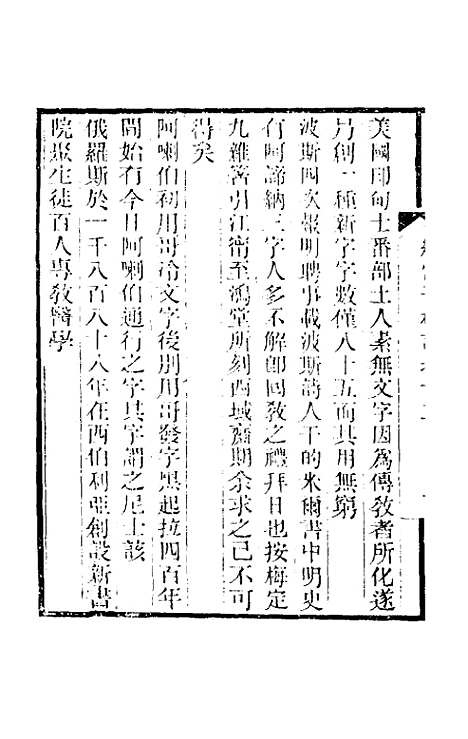 美國印甸士番部土人素無文字因為傳教者所化遂
乃創一種新字字數僅八十五而其用無窮
波斯四次報明聘事載波斯詩人干的米爾書中明史
有阿諦納三字人多不解即回教之禮拜日也按梅定
九雜著引江甯至鴻堂所刻西域齋期余求之已不可
得矣
阿喇伯初用哥冷文字後別用哥發字黑起拉四百年
間始有今日阿喇伯通行之字其字謂之尼士該
俄羅斯于一千八百八十八年在西伯利亞創設新書
院聚生徒百人專教醫學